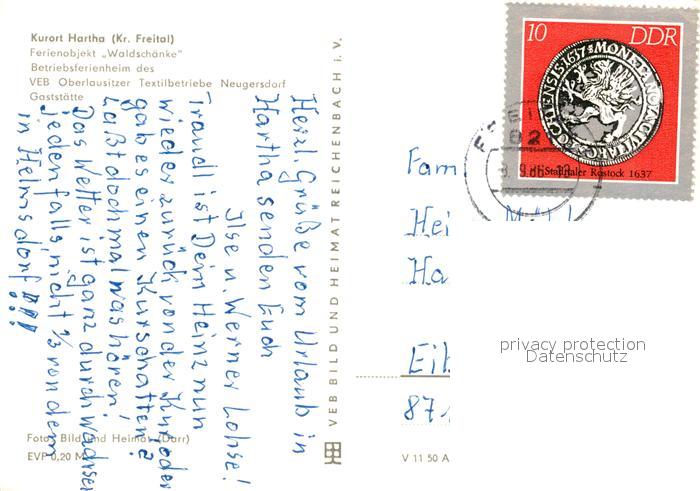 Kurort Hartha (Kr. Freital)
Ferienobjekt „Waldschänke"
Betriebsferienheim des
VEB Oberlausitzer Textilbetriebe Neugersdorf
Gaststätte
Herzl. Grüße vom Urlaub in
Hartha senden Euch
Ilse u. Werner Lohse!
Traudl ist Dein Heinz nun
wieder zurück von der Kur oder
gab es einen Kurschatten?
Laßt doch mal was hören!
Das Wetter ist ganz durchwachsen
jedenfalls nicht 1/3 von dem
in Helmsdorf!!!
Foto: Bild und Heimat (Darr)
EVP 0,20 M
VEB BILD UND HEIMAT REICHENBACH i. V.
V 11 50 A
10 DDR
MONETA NO
1637
Stadttaler Rostock 1637
Fam
Hei
Ha
Eib
87
privacy protection
Datenschutz